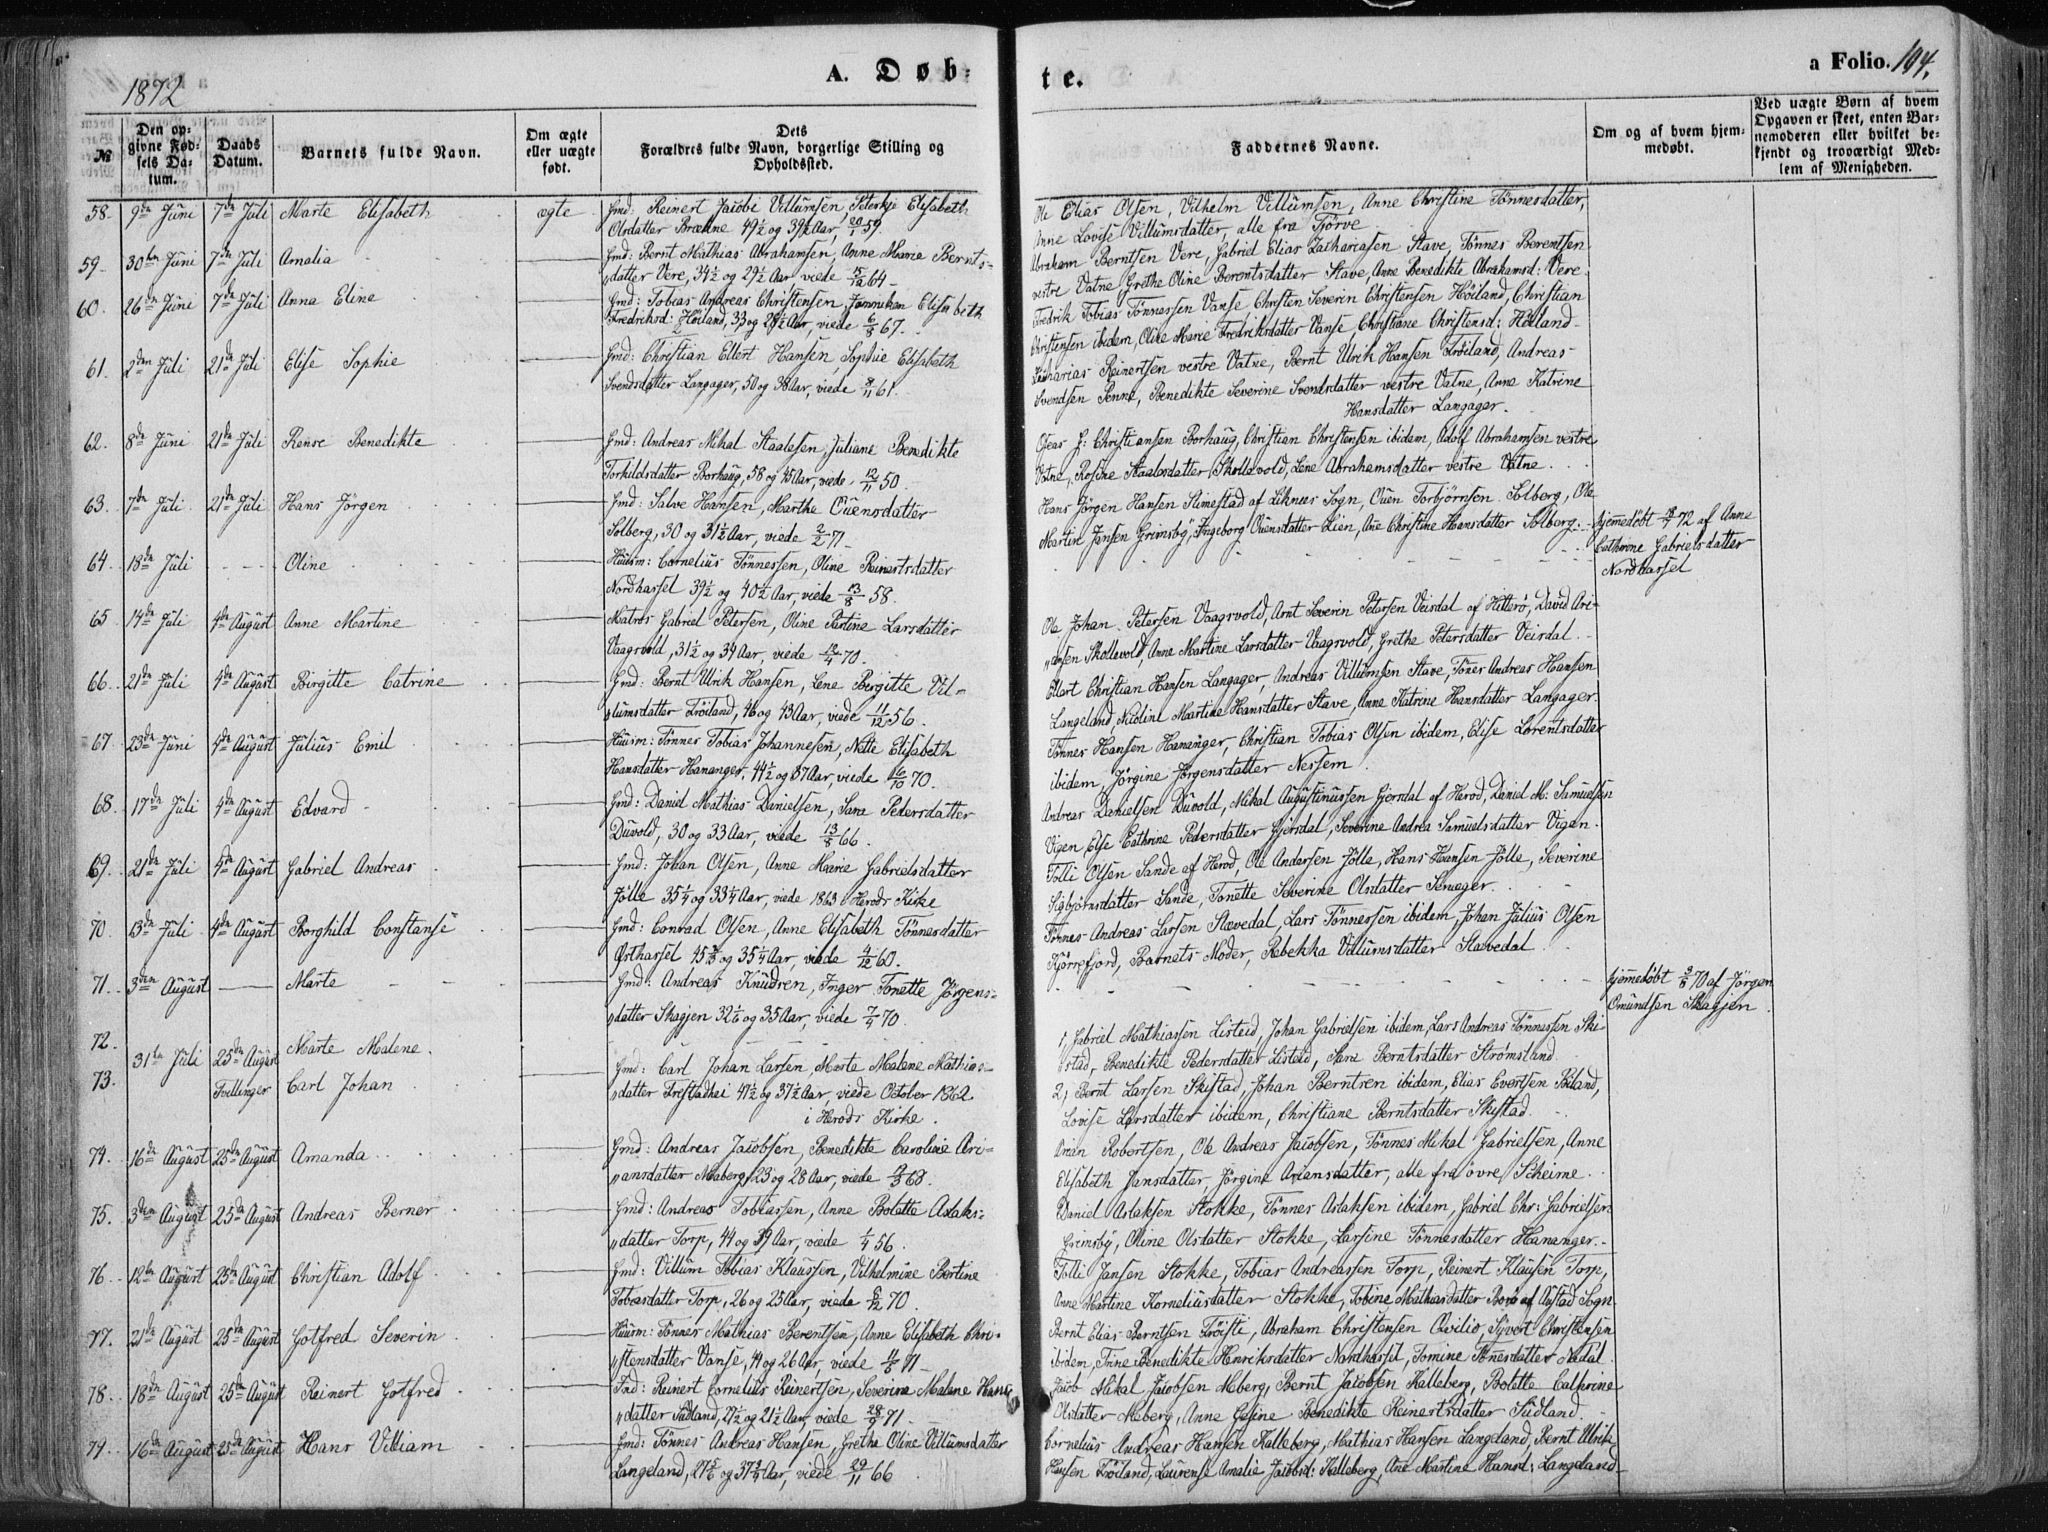 1872
A. Døb-
te.
a Folio. 104.
№
Den opgivne Fødsels Datum.
Daabs Datum.
Barnets fulde Navn.
Om ægte eller uægte født.
Dets Forældres fulde Navn, borgerlige Stilling og Opholdssted.
Faddernes Navne.
Om og af hvem hjemmedøbt.
Ved uægte Børn af hvem Opgaven er skeet, enten Barnemoderen eller hvilket bekjendt og troværdigt Medlem af Menigheden.
58. 9de Juni 7de Juli Marte Elisabeth ægte Gmd: Reinert Jacobi Villumsen, Elisabeth
Olsdatter Brænne 49½ og 39½ Aar, 59.
Ole Elias Olsen, Vilhelm Villumsen, Anne Christine Tönnesdatter,
Anne Lovise Villumsdatter, alle fra Tjörve
59. 30te Juni 7de Juli Amalia Gmd: Bernt Mathias Abrahamsen, Anne Marie Bernts-
datter Vere, 34½ og 29½ Aar, viede 64.
Abraham Berntsen Vere, Gabriel Elias Zachariasen Stave, Tönnes Berentsen
vestre Vatne, Grethe Oline Berentsdatter Stave, Anne Benedikte Abrahamsd: Vere.
60. 26de Juni 7de Juli Anna Eline Gmd: Tobias Andreas Christensen, Jonniken Elisabeth
Fredriksd: Höiland, 33 og 28½ Aar, viede 6/8 67.
Fredrik Tobias Tönnessen Vanse, Christen Severin Christensen Höiland, Christian
Christensen ibidem, Oline Marie Fredriksdatter Vanse, Christiane Christensd: Höiland.
61. 2den Juli 21de Juli Elise Sophie Gmd: Christian Ellert Hansen, Sophie Elisabeth
Svendsdatter Langager, 50 og 38 Aar, viede 61.
Zacharias Reinertsen vestre Vatne, Bernt Ulrik Hansen Tröiland, Andreas
Svendsen Penne, Benedikte Severine Svendsdatter vestre Vatne, Anne Katrine
Hansdatter Langager.
62. 8de Juni 21de Juli Rense Benedikte Gmd: Andreas Mikal Staalesen, Juliane Benedikte
Torkildsdatter Borhaug, 58 og 45 Aar, viede 12/11 50.
Oseas J: Christiansen Borhaug, Christian Christensen ibidem, Adolf Abrahamsen vestre
Vatne, Rosine Staalesdatter Skollevold, Lene Abrahamsdatter vestre Vatne.
63. 7de Juli 21de Juli Hans Jörgen Gmd: Salve Hansen, Marthe Ouensdatter
Solberg, 30 og 31½ Aar, viede 2/2 71
Hans Jörgen Hansen Stimestad af Liknes Sogn, Ouen Torbjörnsen Solberg, Ole
Martin Jansen Grimsby, Ingeborg Ouensdatter Lien, Ane Christine Hansdatter Solberg.
64. 18de Juli Oline Huusm: Cornelius Tönnessen, Oline Reinertsdatter
Nordhassel 39½ og 40½ Aar, viede 13/8 58.
hjemmedöbt 72 af Anne
Cathrine Gabrielsdatter
Nordhassel
65 14de Juli 4de August Anne Martine Matros Gabriel Petersen, Oline Partine Larsdatter
Vaagsvold, 31½ og 34 Aar, viede 70.
Ole Johan Petersen Vaagsvold, Arnt Severin Petersen Veisdal af Hitterö, David Ari-
ansen Skollevold, Anne Martine Larsdatter Vaagsvold, Grethe Petersdatter Veisdal.
66. 21de Juli 4de August Birgitte Catrine Gmd: Bernt Ulrik Hansen, Lene Bergitte Vil-
lumsdatter Tröiland, 46 og 43 Aar, viede 11/12 56.
Ellert Christian Hansen Langager, Andreas Villumsen Stave, Töner Andreas Hansen
Langeland, Nicoline Martine Hansdatter Stave, Anne Katrine Hansdatter Langager.
67. 23de Juni 4de August Julius Emil Huusm: Tönnes Tobias Johannesen, Nette Elisabeth
Hansdatter Hananger, 44½ og 37 Aar, viede 6/10 70.
Tönnes Hansen Hananger, Christian Tobias Olsen ibidem, Elise Lorentsdatter
ibidem, Jörgine Jörgensdatter Nessem.
68. 17de Juli 4de August Edvard Gmd: Daniel Mathias Danielsen, Sara Pedersdatter
Duvold, 30 og 33 Aar, viede 66.
Andreas Danielsen Duvold, Mikal Augustinussen Gjersdal af Herod, Daniel M: Samuelsen
Vigen, Else Cathrine Pedersdatter Gjersdal, Severine Andrea Samuelsdatter Vigen.
69. 21de Juli 4de August Gabriel Andreas Gmd: Johan Olsen, Anne Marie Gabrielsdatter
Jölle 35¼ og 33¼ Aar, viede 1863 i Herods Kirke
Tolli Olsen Sande af Herod, Ole Andersen Jölle, Hans Hansen Jölle, Severine
Sigbjörnsdatter Sande, Tonette Severine Olsdatter
70. 13de Juli 4de August Borghild Constanse Gmd: Conrad Olsen, Anne Elisabeth Tönnesdatter
Östhassel og 35¼ Aar, viede 4/12 60.
Tönnes Andreas Larsen Stavedal, Lars Tönnessen ibidem, Johan Julius Olsen
Kjörrefjord, Barnets Moder, Rebekka Villumsdatter Stavedal
71. 3den August Marte Gmd: Andreas Knudsen, Inger Tonette Jörgens-
datter Skagjen og 35 Aar, viede 7/4 70.
hjemmedöbt 3/8 70 af Jörgen
Omundsen Skagjen.
72. 31te Juli 25de August Marte Malene.
1, Gabriel Mathiassen Listeid, Johan Gabrielsen ibidem, Lars Andreas Tönnessen Ski-
stad, Benedikte Pedersdatter Listeid, Sara Berntsdatter Strömsland.
73. Tvillinger Carl Johan Gmd: Carl Johan Larsen, Marte Malene Mathias-
datter Frestadhei 41½ og 37½ Aar, viede October 1862
i Herods Kirke.
2, Bernt Larsen Skistad, Johan Berntsen ibidem, Elias Evertsen Röiland,
Lovise Larsdatter ibidem, Christiane Berntsdatter Skistad.
74. 16de August 25de August Amanda Gmd: Andreas Jacobsen, Benedikte Caroline Ari-
ansdatter Meberg, 23 og 28 Aar, viede 68.
Arian Robertsen, Ole Andreas Jacobsen, Tönnes Mikal Gabrielsen, Anne
Elisabeth Jansdatter, Jörgine Ariansdatter, alle fra övre Skeime.
75. 3den August 25de August Andreas Berner Gmd: Andreas Tobiassen, Anne Bolette Aslaks-
datter Torp, 44 og 39 Aar, viede 1/4 56.
Daniel Aslaksen Stokke, Tönnes Aslaksen ibidem, Gabriel Chr: Gabrielsen
Grimsby, Oline Olsdatter Stokke, Larsine Tönnesdatter Hananger.
76. 12te August 25de August Christian Adolf Gmd: Villum Tobias Klaussen, Vilhelmine Bertine
Tobiasdatter Torp, 26 og 25 Aar, viede 70.
Tolli Jansen Stokke, Tobias Andreassen Torp, Reinert Klausen Torp,
Anne Martine Korneliusdatter Stokke, Tobine Mathiasdatter af Austad Sogn
77. 21de August 25de August Gotfred Severin Huusm: Tönnes Mathias Berentsen, Anne Elisabeth Chri-
stensdatter Vanse, 44 og 26 Aar, viede 71
Bernt Elias Berntsen Tröisti, Abraham Christensen Qviliö, Sÿvert Christensen
ibidem, Trine Benedikte Henriksdatter Nordhassel, Tomine Tönesdatter
78. 18de August 25de August Reinert Gotfred Ind: Reinert Cornelius Reinertsen, Severine Malene Hans-
datter Sudland, 27½ og 21½ Aar, viede 71
Jacob Mikal Jacobsen Meberg, Bernt Jacobsen Kalleberg, Bolette Cathrine
Olsdatter Meberg, Anne Gesine Benedikte Reinertsdatter Sudland.
79. 16de August 25de August Hans Villiam Gmd: Tönnes Andreas Hansen, Grethe Oline Villumsdatter
Langeland, og Aar, viede 29/11 66
Cornelius Andreas Hansen Kalleberg, Mathias Hansen Langeland, Bernt Ulrik
Hansen Tröiland, Laurense Amalie Jacobsd: Kalleberg, Ane Martine Hansd: Langeland